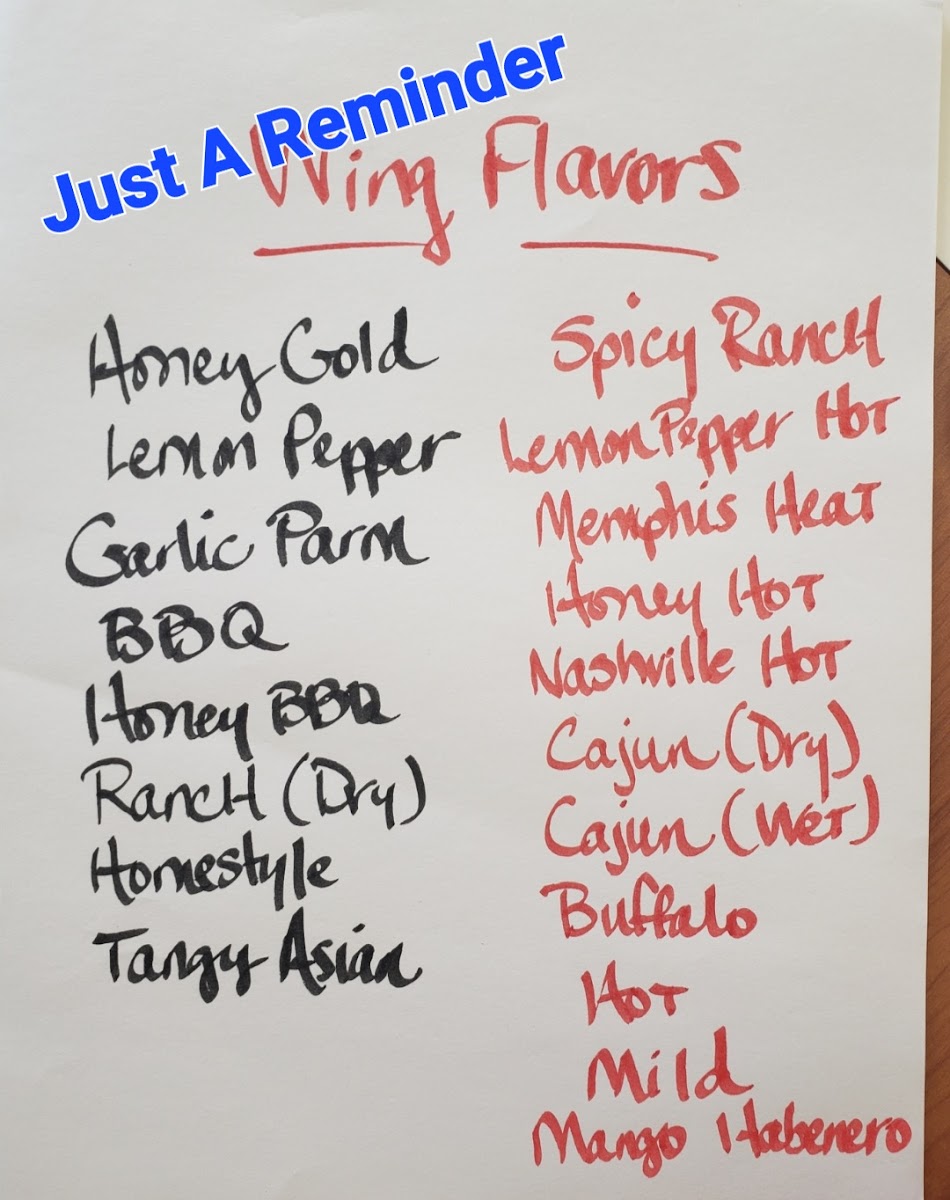 Just A Reminder
Wing Flavors
Honey Gold
Lemon Pepper
Garlic Parm
BBQ
Honey BBQ
Ranch (Dry)
Homestyle
Tangy Asian
Spicy Ranch
Lemon Pepper Hot
Memphis Heat
Honey Hot
Nashville Hot
Cajun (Dry)
Cajun (Wet)
Buffalo
Hot
Mild
Mango Habenero